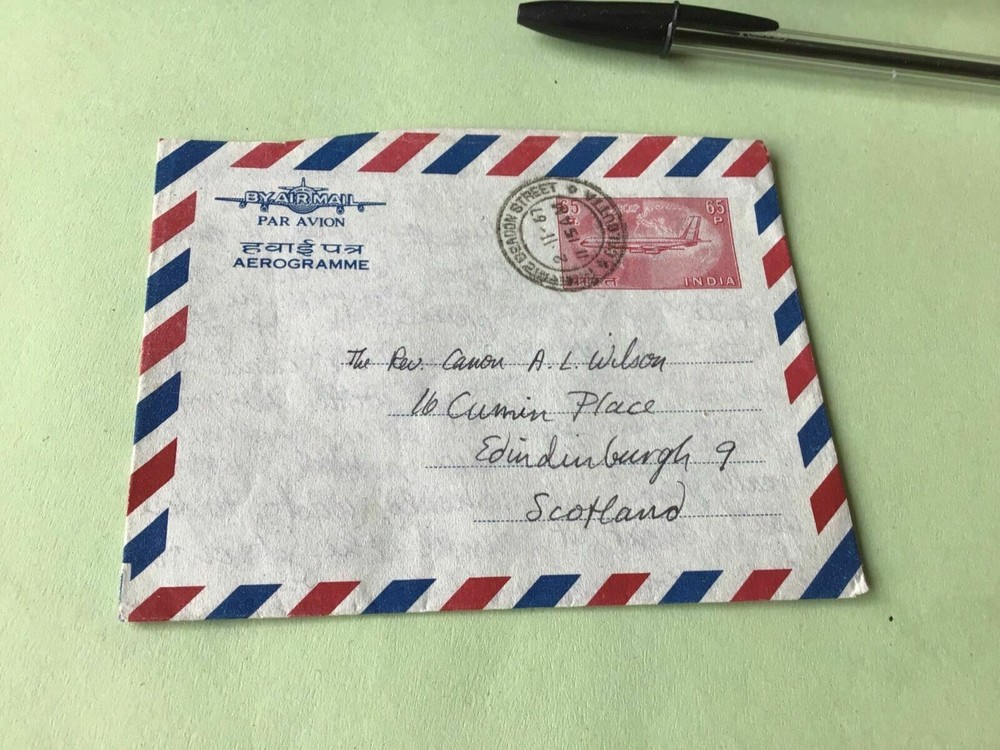 BY AIR MAIL
PAR AVION
हवाई पत्र
AEROGRAMME
BEADON STREET
CALCUTTA
2-11-67
65
65
P
INDIA
The Rev. Canon A. L. Wilson
16 Cumin Place
Edindinburgh 9
Scotland